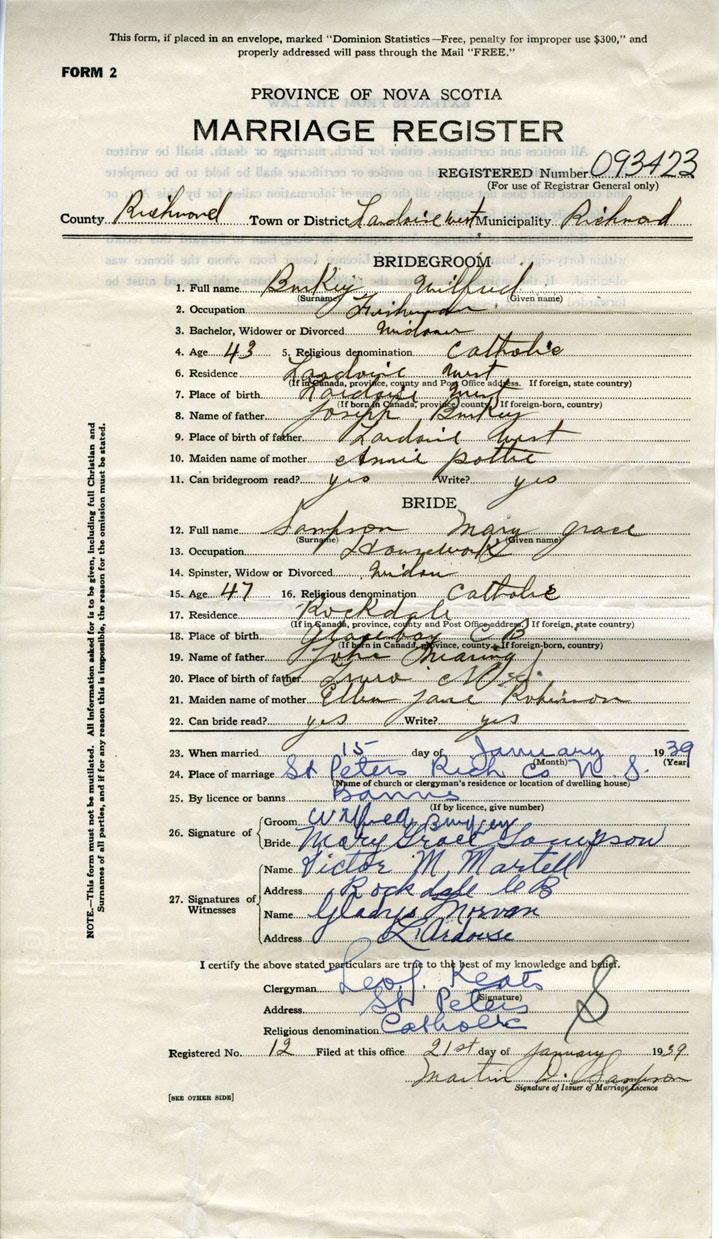 This form, if placed in an envelope, marked "Dominion Statistics—Free, penalty for improper use $300," and
properly addressed will pass through the Mail "FREE."
FORM 2
PROVINCE OF NOVA SCOTIA
MARRIAGE REGISTER
REGISTERED Number 093423
(For use of Registrar General only)
County Richmond Town or District Lardoise west Municipality Richmond
BRIDEGROOM
1. Full name Burkey Wilfred
(Surname) (Given name)
2. Occupation Fisherman
3. Bachelor, Widower or Divorced Widower
4. Age 43 5. Religious denomination Catholic
6. Residence Lardoise West
(If in Canada, province, county and Post Office address. If foreign, state country)
7. Place of birth Lardoise West
(If born in Canada, province, county. If foreign-born, country)
8. Name of father Joseph Burkey
9. Place of birth of father Lardoise West
10. Maiden name of mother Annie Pottie
11. Can bridegroom read? yes Write? yes
BRIDE
12. Full name Sampson Mary grace
(Surname) (Given name)
13. Occupation Housework
14. Spinster, Widow or Divorced Widow
15. Age 47 16. Religious denomination Catholic
17. Residence Rockdale
(If in Canada, province, county and Post Office address. If foreign, state country)
18. Place of birth Glacebay C B
(If born in Canada, province, county. If foreign-born, country)
19. Name of father John
20. Place of birth of father Truro N.S.
21. Maiden name of mother Ellen Jane Robinson
22. Can bride read? yes Write? yes
23. When married 15 day of January 1939
(Month) (Year)
24. Place of marriage St Peters Rich Co N. S.
(Name of church or clergyman's residence or location of dwelling house)
25. By licence or banns Banns
(If by licence, give number)
26. Signature of
Groom Wilfred Burkey
Bride Mary Grace Sampson
27. Signatures of Witnesses
Name Victor M Martell
Address Rockdale C B
Name Gladys Morvan
Address L'Ardoise
I certify the above stated particulars are true to the best of my knowledge and belief.
Clergyman Leo J. Keats
(Signature)
Address St Peters
Religious denomination Catholic
Registered No. 12 Filed at this office 21st day of January 1939
Martin D. Sampson
Signature of Issuer of Marriage Licence
[SEE OTHER SIDE]
NOTE.—This form must not be mutilated. All information asked for is to be given, including full Christian and
Surnames of all parties, and if for any reason this is impossible, the reason for the omission must be stated.